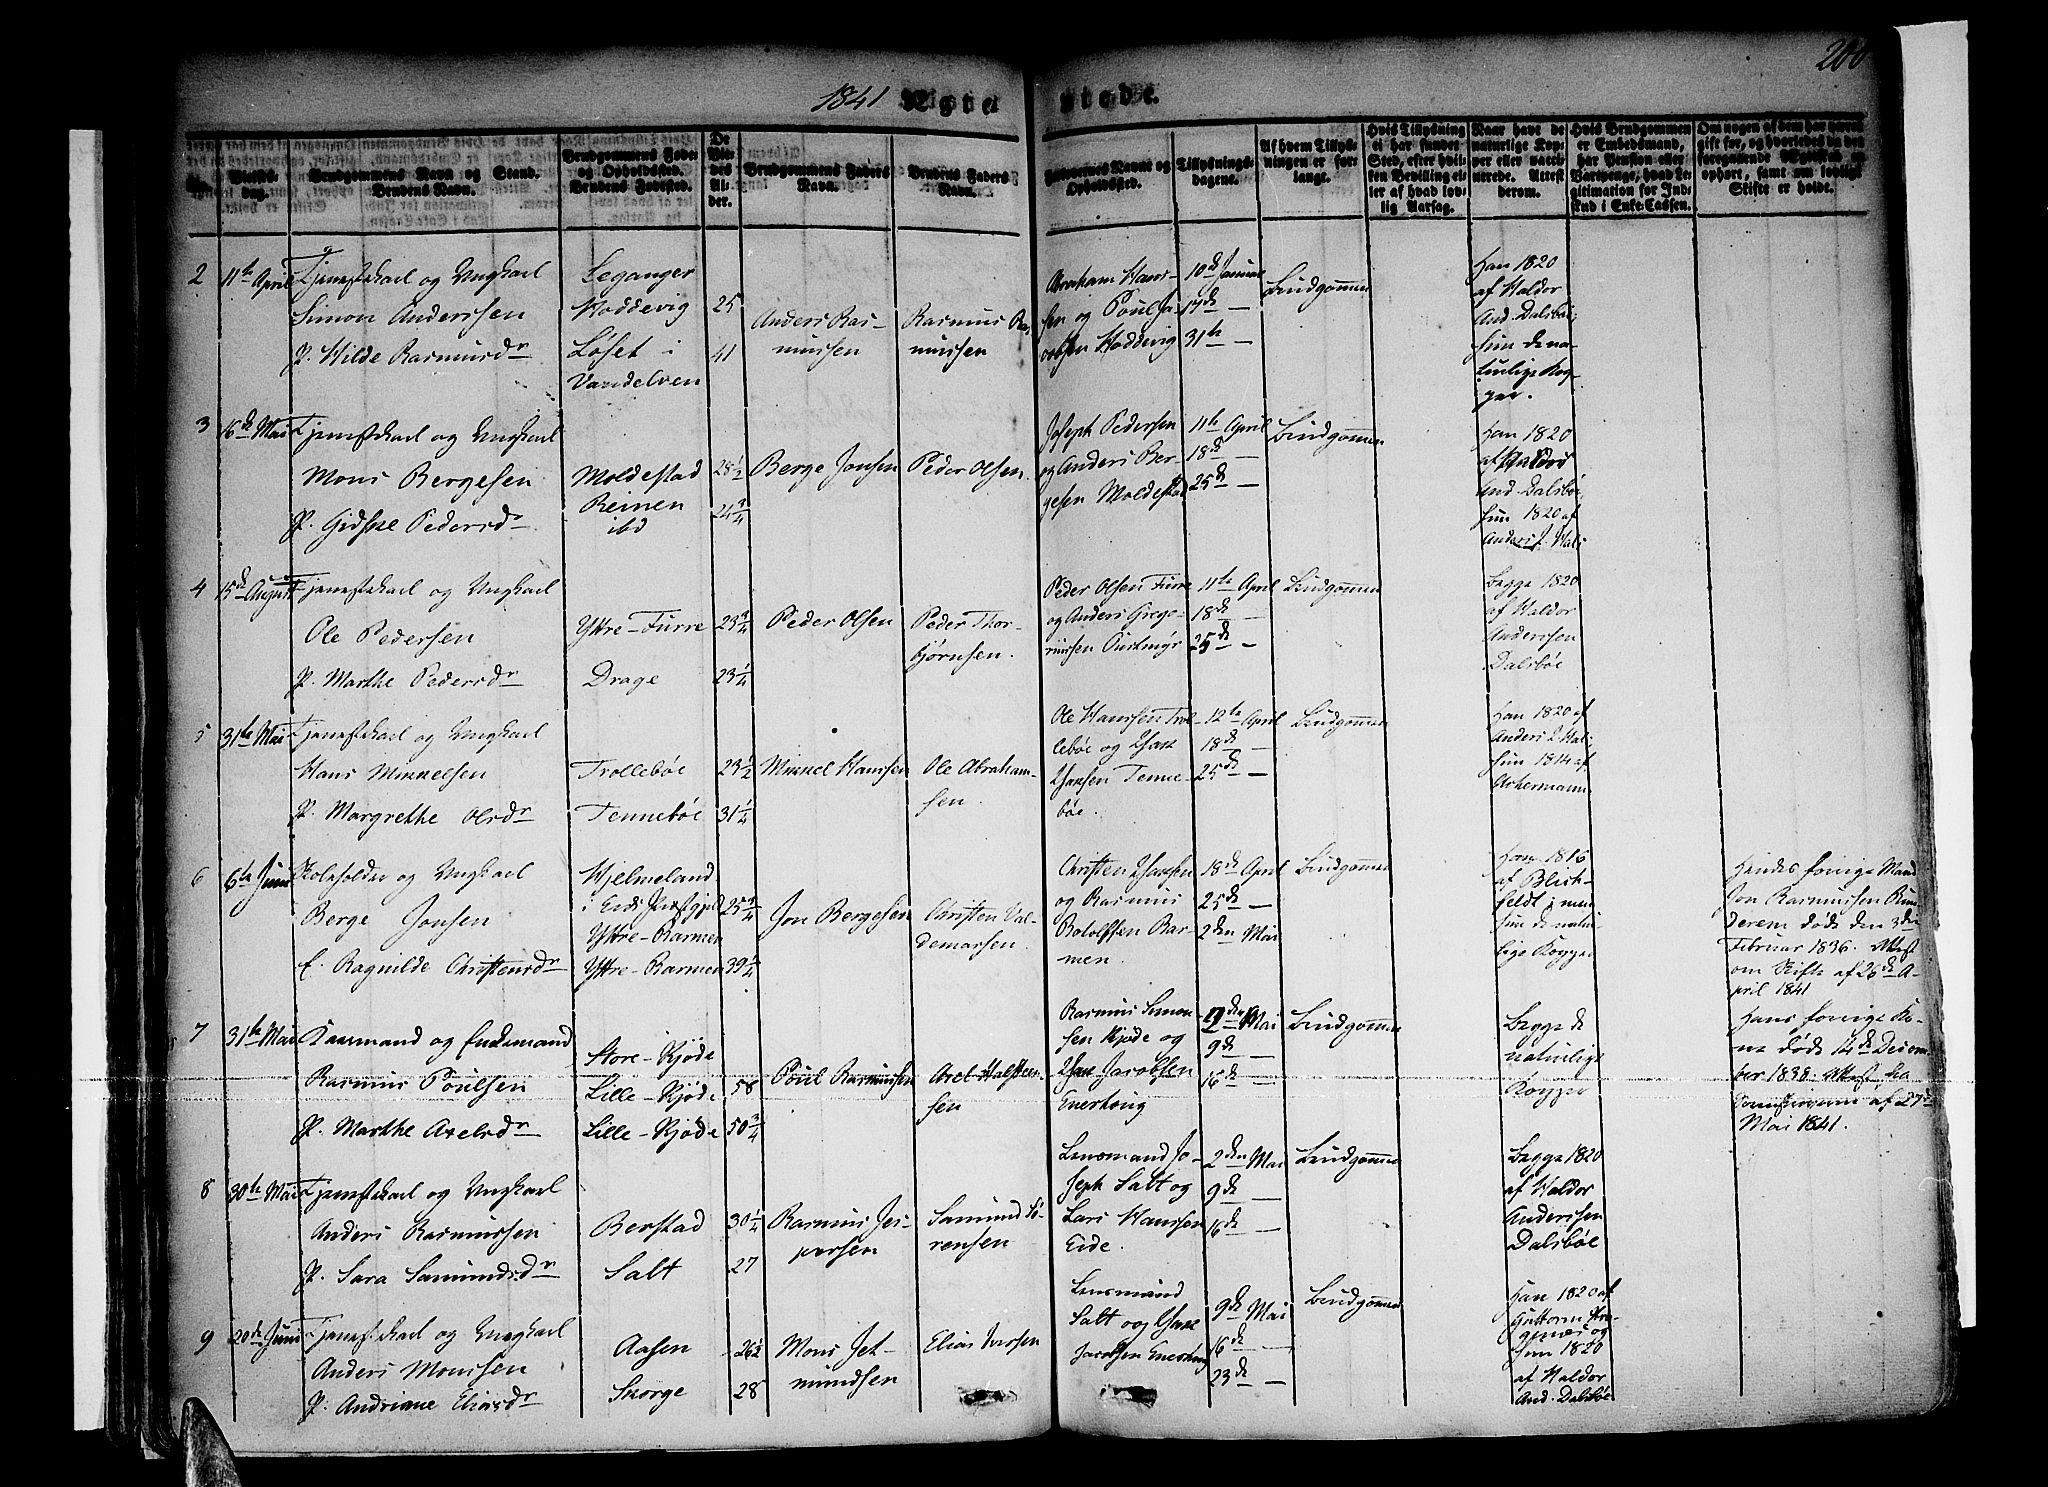 200
1841 Ægte-
viede.
Vielses-
dag.
Brudgommens Navn og Stand.
Brudens Navn.
Brudgommens Føde-
og Opholdssted.
Brudens Fødested.
De
Vie-
des
Al-
der.
Brudgommens Faders
Navn.
Brudens Faders
Navn.
Forlovernes Navne og
Opholdssted.
Tillysnings-
dagene.
Af hvem Tillys-
ningen er for-
langt.
Hvis Tillysning
ei har fundet
Sted, efter hvil-
ken Bevilling el-
ler af hvad lov-
lig Aarsag.
Naar have de
naturlige Kop-
per eller vacci-
nerede. Attest
derom.
Hvis Brudgommen
er Embedsmand,
har Pension eller
Vartpenge, hvad Le-
gitimation for Ind-
skud i Enke-Cassen.
Om nogen af dem har været
gift før, og hvorledes da det
foregaaende Ægteskab er
ophørt, samt om lovligt
Skifte er holdt.
2 11te April Tjenestekarl og Ungkarl
Simon Anderssen
P. Hilde Rasmusdr
Selganger
Hoddevig
Løset i
Vandelven
25
41
Anders Ras-
mussen
Rasmus Ras-
mussen
Abraham Hans-
sen og Poul Ja-
cobsen Hoddevig
10de Januar
17de —
31te —
Brudgommen
Han 1820
af Haldor
And. Dalsbøe,
hun de na-
turlige Kop-
per.
3 16de Mai Tjenestekarl og Ungkarl
Mons Bergesen
P. Gidske Pedersdr
Moldestad
Reinen
ibd
28½
24¾
Berge Jonsen
Peder Olsen
Joseph Pedersen
og Anders Ber-
gesen Moldestad
11te April
18de —
25de —
Brudgommen
Han 1820
af Haldor
And. Dalsbøe,
hun 1820 af
Anders J. Hals
4 15de August Tjenestekarl og Ungkarl
Ole Pedersen
P. Marthe Pedersdr
Yttre-Furre
Drage
23¾
23¼
Peder Olsen
Peder Thor-
bjørnsen.
Peder Olsen Furre
og Anders Grege-
riussen
11te April
18de —
25de —
Brudgommen
Begge 1820
af Haldor
Anderssen
Dalsbøe
5 31te Mai Tjenestekarl og Ungkarl
Hans Mikkelsen
P. Margrethe Olsdr
Trollebøe
Tennebøe
23½
31¼
Mikkel Hanssen
Ole Abraham-
sen.
Ole Hanssen Trol-
lebøe og Isak
Isaksen Tenne-
bøe.
12te April
18de —
25de —
Brudgommen
Han 1820 af
Anders J. Hals
hun 1814 af
Ackermann
6 6te Juni Skoleholder og Ungkarl
Berge Jonsen
E. Ragnilde Christensdr
Hjelmeland
i Eids Præstgjeld
Yttre-Barmen
Yttre-Barmen
25¾
39¼
Jon Bergesen
Christen Val-
demarsen.
Christen Isaksen
og Rasmus
Rotolfsen Bar-
men.
18de April
25de —
2den Mai
Brudgommen
Han 1816
af Blich-
feldt, men
hun de natur-
lige Kopper
Hendes forrige Mand
Jon Rasmussen Run-
derem døde den 3die
Februar 1836. Attest
om Skifte af 26de A-
pril 1841
7 31te Mai Kaarmand og Enkemand
Rasmus Poulsen
P. Marthe Axelsdr
Store-Kjøde
Lille-Kjøde
Lille-Kjøde
58
50¾
Poul Rasmussen
Axel Halsteen-
sen
Rasmus Simon-
sen Kjøde og
Isak Jacobsen
Enerhoug
2den Mai
9de —
16de —
Brudgommen
Begge de
naturlige
Kopper
Hans forrige Ko-
ne døde 14de Decem-
ber 1838. Attest fra
af 27de
Mai 1841.
8 30te Mai Tjenestekarl og Ungkarl
Anders Rasmussen
P. Sara Samundsdr
Berstad
Salt
30¼
27
Rasmus Jes-
persen
Samund Sø-
rensen
Lensmand Jo-
seph Salt og
Lars Hanssen
Eide.
2den Mai
9de —
16de —
Brudgommen
Begge 1820
af Haldor
Anderssen
Dalsbøe
9 20de Juni Tjenestekarl og Ungkarl
Anders Monssen
P. Andriane Eliasdr
Aasen
Skorge
26½
28
Mons Jet-
mundsen
Elias Iverssen
Lensmand
Salt og Isak
Jacobsen Enerhoug
9de Mai
16de —
23de —
Brudgommen
Han 1820 af
Guttorm
og
hun 1820
af Haldor
And. Dalsbøe